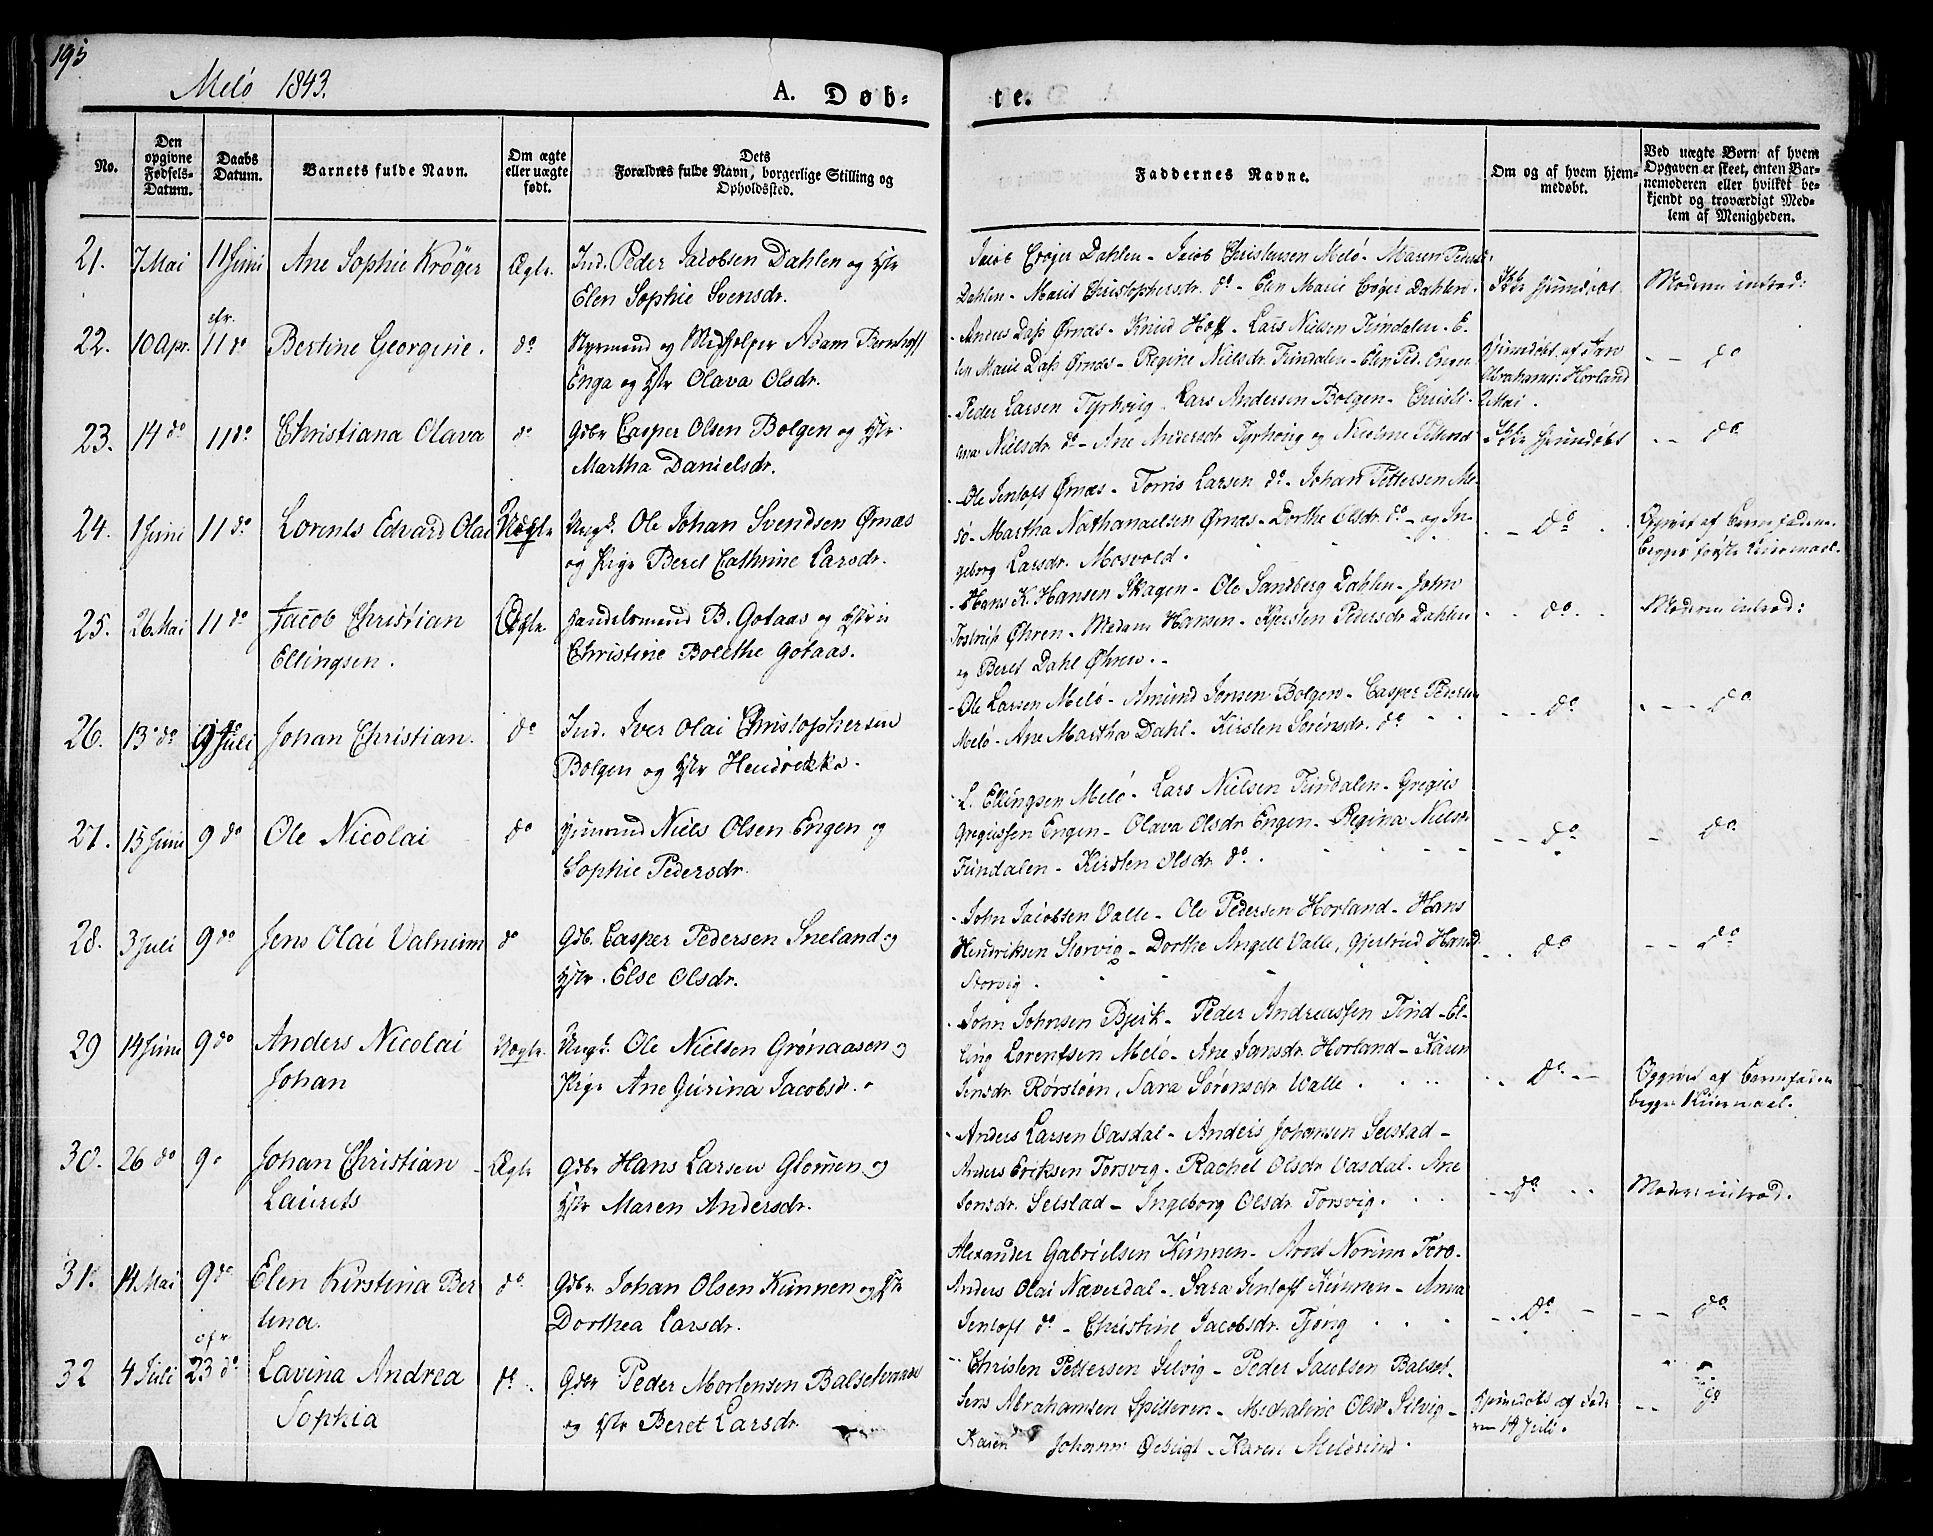 195
Melö 1843.
A. Døb-
te.
No.
Den opgivne Fødsels-Datum.
Daabs Datum.
Barnets fulde Navn.
Om ægte eller uægte født.
Forældres fulde Navn, Dets borgerlige Stilling og Opholdssted.
Faddernes Navne.
Om og af hvem hjemmedøbt.
Ved uægte Børn af hvem Opgaven er skeet, enten Barnemoderen eller hvilket bekjendt og troværdigt Medlem af Menigheden.
21. 7 Mai 11 Juni Ane Sophie Krøger Ægte Ind. Peder Jacobsen Dahlen og Hstr
Elen Sophie Svensdr.
Jacob Crøjer Dahlen - Jacob Christensen Melö - Maren Pedersd.
Dahlen - Marit Christophersdr. do - Elen Marie Crøger Dahlen.
Ikke hjemdøbt
Moderen introd:
22. 10 Apr. cfr. 11 do Bertine Georgine. do Styrmand og Medhjelper Adam Bernhoft
Enga og Hstr Olava Olsdr.
Anders Dass Ørnes - Knud Hoff - Lars Nielsen Fundalen - E-
len Marie Dass Ørnes - Regine Nielsdr. Fundalen - Elen Ped. Engen
Hjemdøbt af Arn
Abrahams: Horland
Mai.
- - do
23. 14 do 11 do Christiana Olava do Gdbr Casper Olsen Bolgen og Hstr.
Martha Danielsdr.
- Peder Larsen Tyrhvig - Lars Andersen Bolgen - Christi-
ana Nielsdr. do - Ane Andersdr Tyrhvig og Nicoline
Ikke hjemdøbt
- - do
24. 1 Juni 11 do Lorents Edvard Olai Uægte Ungk. Ole Johan Svendsen Ørnæs
og Pige Beret Cathrine Larsdr.
- Ole Jentoft Ørnæs - Torris Larsen do - Johan Pettersen Me-
sö - Martha Nathanaelsen Ørnæs - Dorthe Olsdr. do - og In-
geborg Larsdr. Mosvold.
- do -
Opgivet af Barnefaderen
begges første Leiermaal.
25. 26 Mai 11 do Jacob Christian
Ellingsen. Ægte Handelsmand B. Gotaas og Hstr
Christine Bolethe Gotaas.
- Hans K. Hansen Skagen - Ole Sandberg Dahlen - John
Tostrup Øhren - Madam Hansen - Kjersten Pedersdr Dahlen
og Beret Dahl Øhren. -
- do -
Moderen introd:
26. 13 do 9 Juli Johan Christian. do Ind. Iver Olai Christophersen
Bolgen og Hstr Hendrikka.
- Ole Larsen Melö - Amund Jonsen Bolgen - Casper Pedersen
Melö - Ane Martha Dahl - Kirsten Sørensdr. do
- - do
- - - do
27. 15 Juni 9 do Ole Nicolai do Huusmand Niels Olsen Engen og
Sophie Pedersdr.
- L. Ellingsen Melö - Lars Nielsen Fundalen - Gregus
Gregussen Engen - Olava Olsdr Engen - Regina Nielsdr
Fundalen - Kirsten Olsdr do.
- - do
- do
28. 3 Juli 9 do Jens Olai Valnum do Gdb. Casper Pedersen Sneland og
Hstr. Else Olsdr.
- John Jacobsen Valle - Ole Pedersen Horland - Hans
Hendriksen Storvig - Dorthe Angell Valle, Gjertrud Hansd.
Storvig.
- do
- - do
29 14 Juni 9 do Anders Nicolai
Johan Uægte Ungk. Ole Nielsen Grønaasen og
Pige Ane Gurina Jacobsdr.
- John Johnsen Bjerk - Peder Andreassen Find - El-
ling Lorentsen Melö - Ane Jansdr. Horland - Karen
Jensdr. Rørsløen, Sara Sørensdr. Valle.
- do - -
Opgivet af Barnefaderen
begges Leiermaal.
30. 26 do 9 Johan Christian
Laurits Ægte Gdbr Hans Larsen Glomen og
Hstr Maren Andersdr.
- Anders Larsen Vasdal - Anders Johansen Selstad -
Anders Eriksen Torsvig - Rachel Olsdr Vasdal - Ane
Jonsdr. Selstad - Ingeborg Olsdr Torsvig.
- do
Moder: introd.
31. 14 Mai 9 do Elen Kirstina Ber
tina. do Gdbr Johan Olsen Kunnen og Hstr
Dorthea Larsdr.
Alexander Gabrielsen Kunnen - Arnt Norum Forø -
Anders Olai Næverdal - Sara Jentoft Kunnen - Anna
Jentoft do - Christine Jacobsdr. Tjøng
- do -
- - do
32 4 Juli cfr 23 do Lavina Andrea
Sophia do. Gdbr Peder Mortensen Balsetvaag
og Hstr Beret Larsdr.
- Christen Pettersen Selvig - Peder Jacobsen Balset -
Jens Abrahamsen Spilderen - Methaline Olsdr Selvig -
Karen Johanne - Karen Melösund.
Hjemdøbt af Fade
ren 14 Juli.
- - do